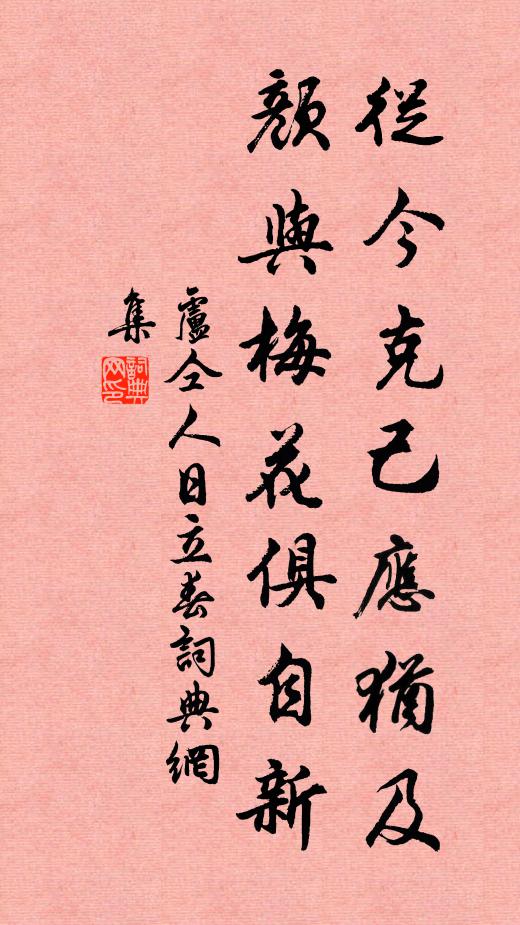 從今克己應猶及
顏與梅花俱自新
盧仝人日立春詞典網
集
詞典
网印